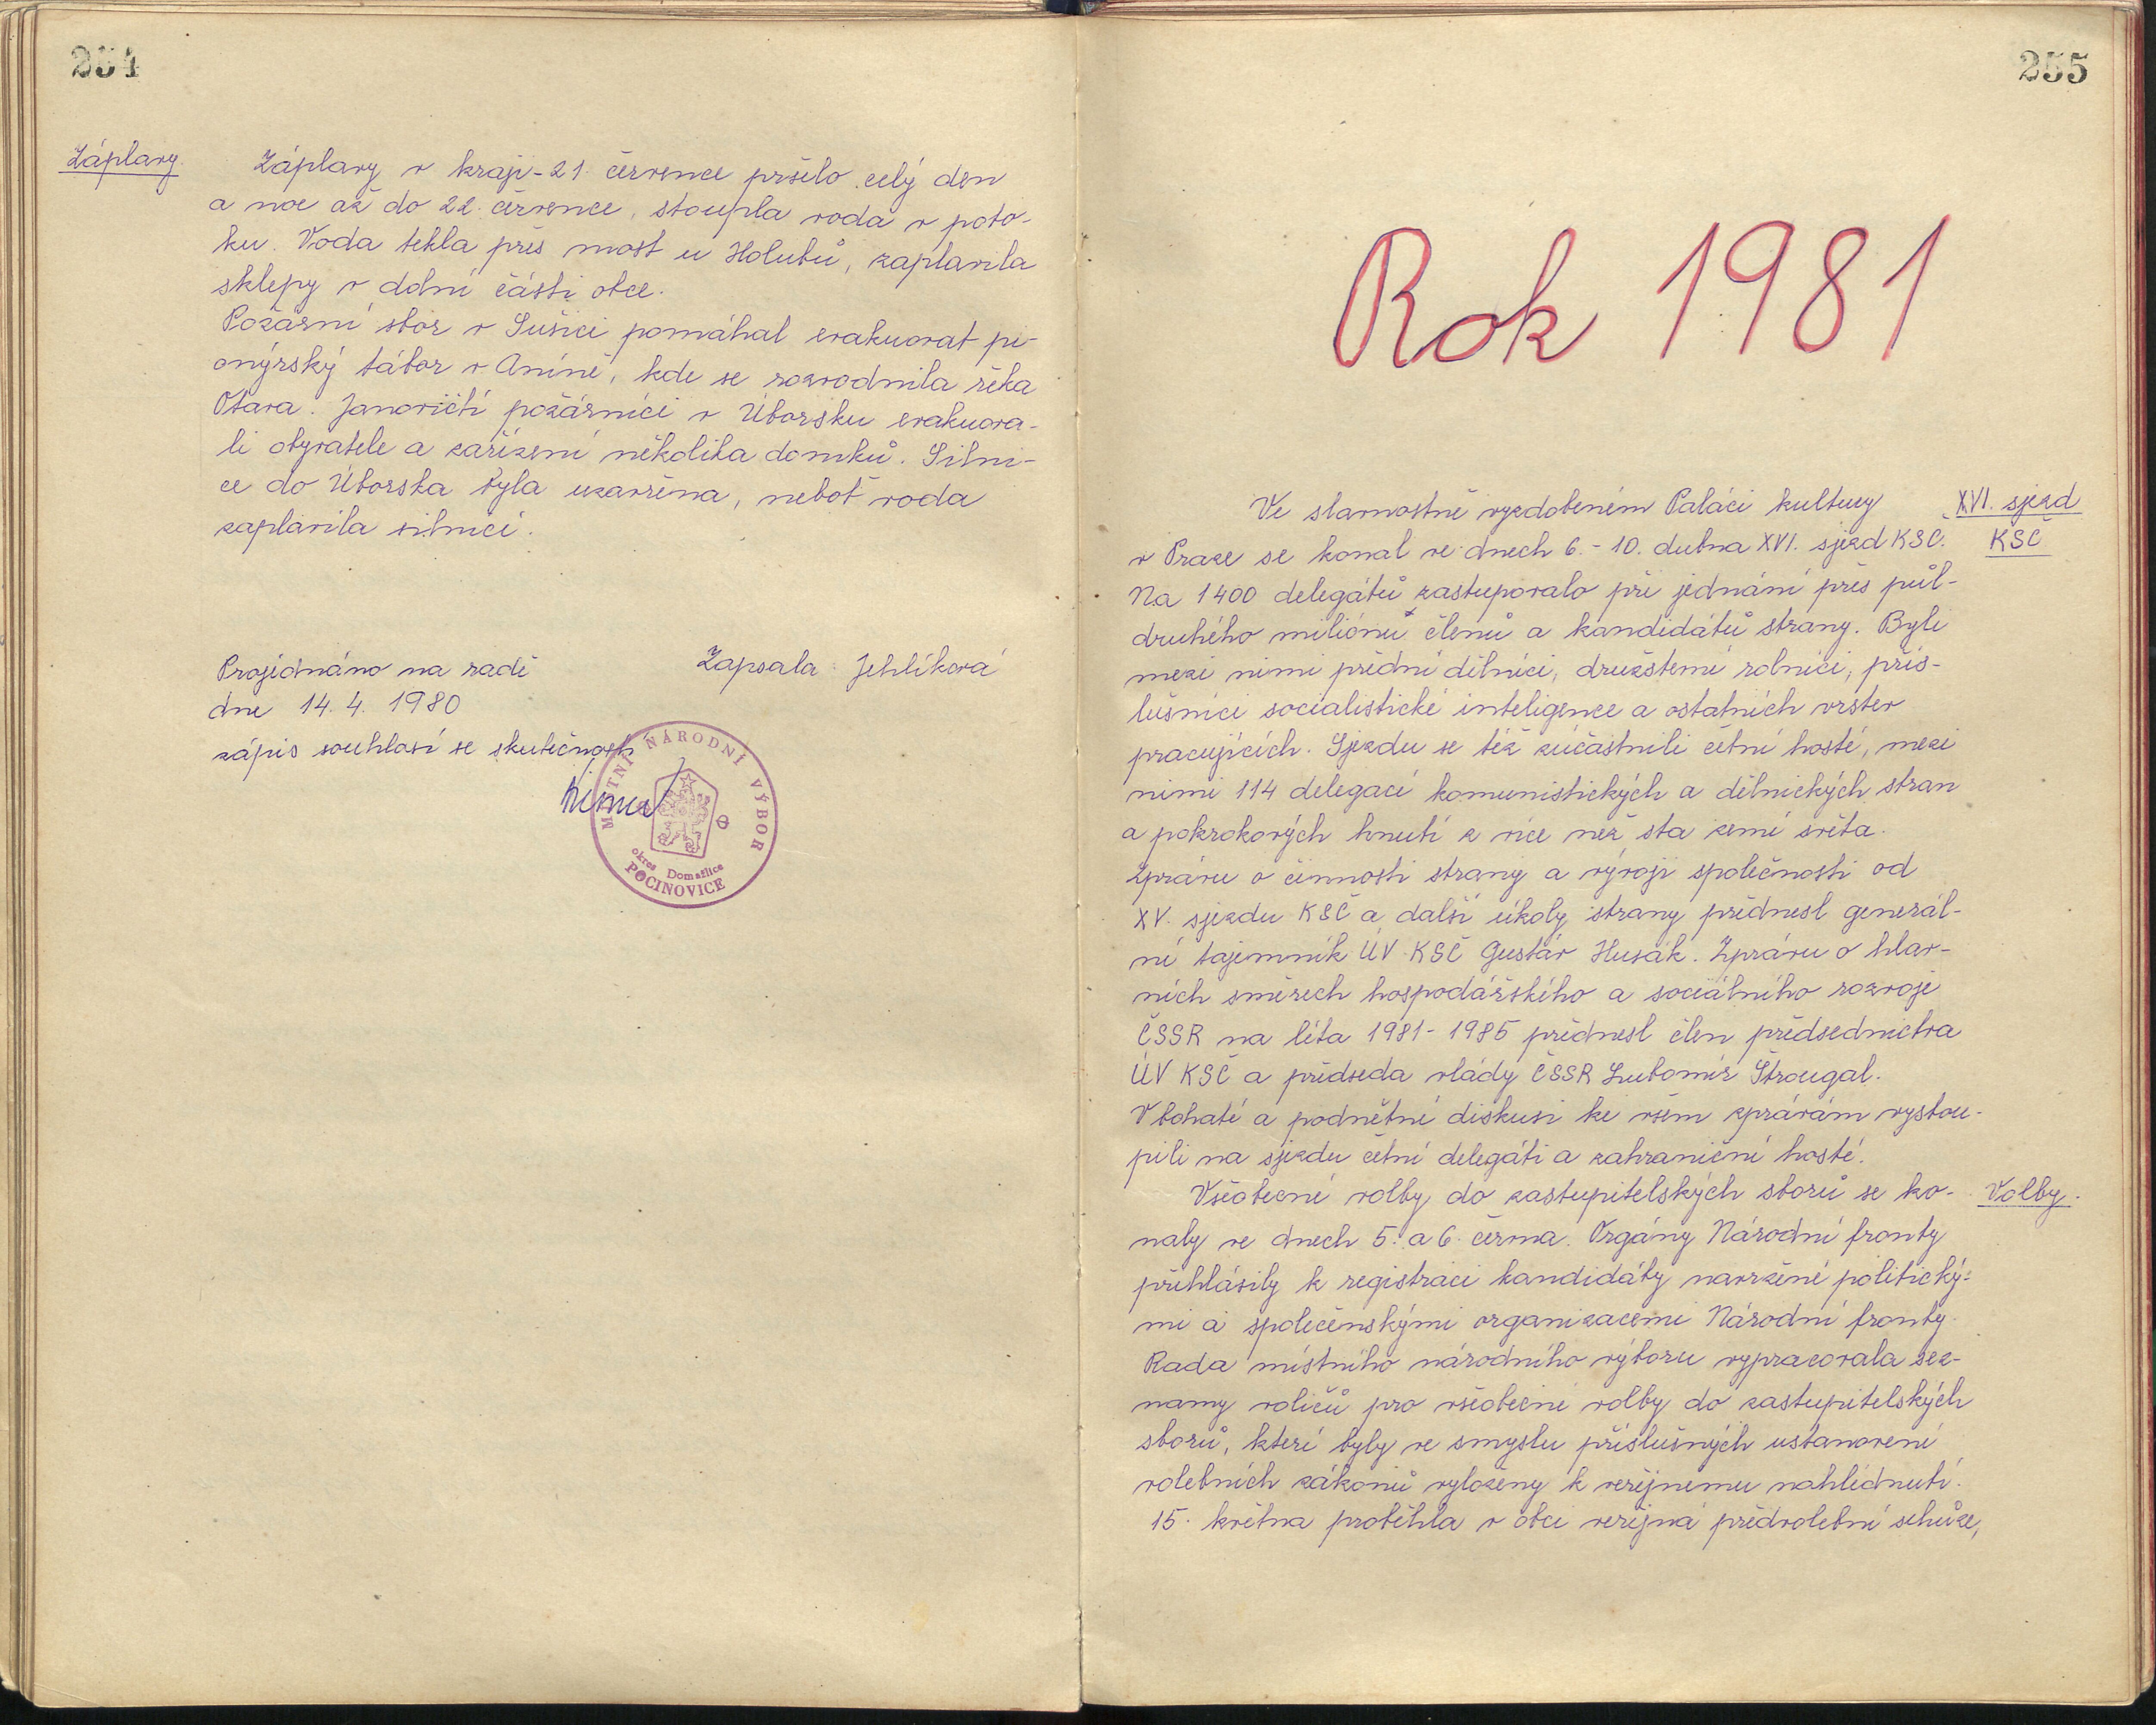 254
Záplavy.
Záplavy v kraji - 21. července pršelo celý den
a noc až do 22. července, stoupla voda v poto-
ku. Voda tekla přes most u Holubů, zaplavila
sklepy v dolní části obce.
Požární sbor v Sušici pomáhal evakuovat pi-
onýrský tábor v Aníně, kde se rozvodnila řeka
Otava. Janovičtí požárníci v Úborsku evakuova-
li obyvatele a zařízení několika domků. Silni-
ce do Úborska byla uzavřena, neboť voda
zaplavila silnici.
Projednáno na radě
dne 14. 4. 1980
zápis souhlasí se skutečností
Zapsala: Jehlíková
MÍSTNÍ NÁRODNÍ VÝBOR
okres Domažlice
POCINOVICE
255
Rok 1981
XVI. sjezd
KSČ
Ve slavnostně vyzdobeném Paláci kultury
v Praze se konal ve dnech 6. - 10. dubna XVI. sjezd KSČ.
Na 1400 delegátů zastupovalo při jednání přes půl-
druhého miliónu členů a kandidátů strany. Byli
mezi nimi přední dělníci, družstevní rolníci, přís-
lušníci socialistické inteligence a ostatních vrstev
pracujících. Sjezdu se též zúčastnili četní hosté, mezi
nimi 114 delegací komunistických a dělnických stran
a pokrokových hnutí z více než sta zemí světa.
Zprávu o činnosti strany a vývoji společnosti od
XV. sjezdu KSČ a další úkoly strany přednesl generál-
ní tajemník ÚV KSČ Gustáv Husák. Zprávu o hlav-
ních směrech hospodářského a sociálního rozvoje
ČSSR na léta 1981 - 1985 přednesl člen předsednictva
ÚV KSČ a předseda vlády ČSSR Lubomír Štrougal.
V bohaté a podnětné diskusi ke všem zprávám vystou-
pili na sjezdu četní delegáti a zahraniční hosté.
Volby.
Všeobecné volby do zastupitelských sborů se ko-
naly ve dnech 5. a 6. června. Orgány Národní fronty
přihlásily k registraci kandidáty navržené politický-
mi a společenskými organizacemi Národní fronty.
Rada místního národního výboru vypracovala sez-
namy voličů pro všeobecné volby do zastupitelských
sborů, které byly ve smyslu příslušných ustanovení
volebních zákonů vyloženy k veřejnemu nahlédnutí.
15. května proběhla v obci veřejná předvolební schůze,